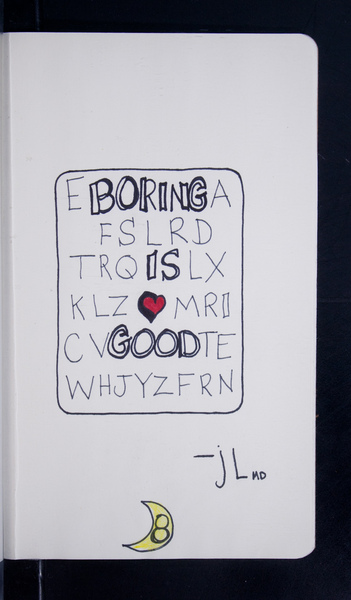 E BORING A
FSLRD
TRQ IS LX
KLZ ♥ MRI
CV GOOD TE
WHJYZFRN
-jL MD
8